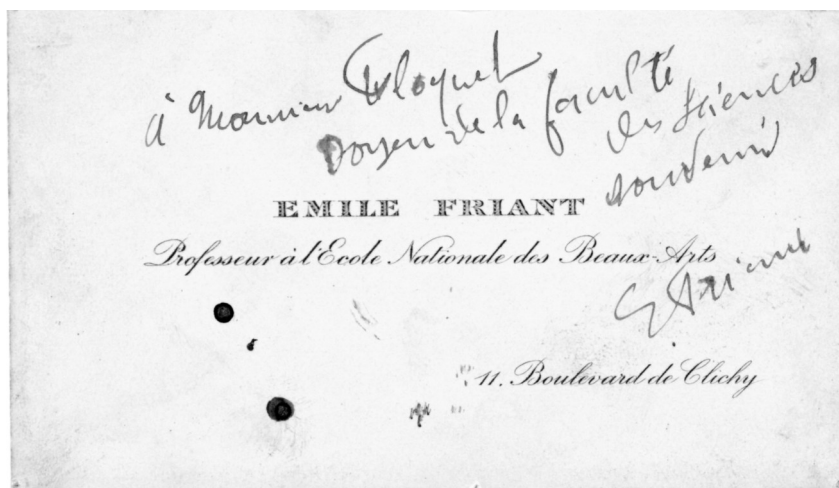 à Monsieur Floquet
Doyen de la faculté
des Sciences
souvenir
EMILE FRIANT
Professeur à l'Ecole Nationale des Beaux-Arts
E Friant
11. Boulevard de Clichy